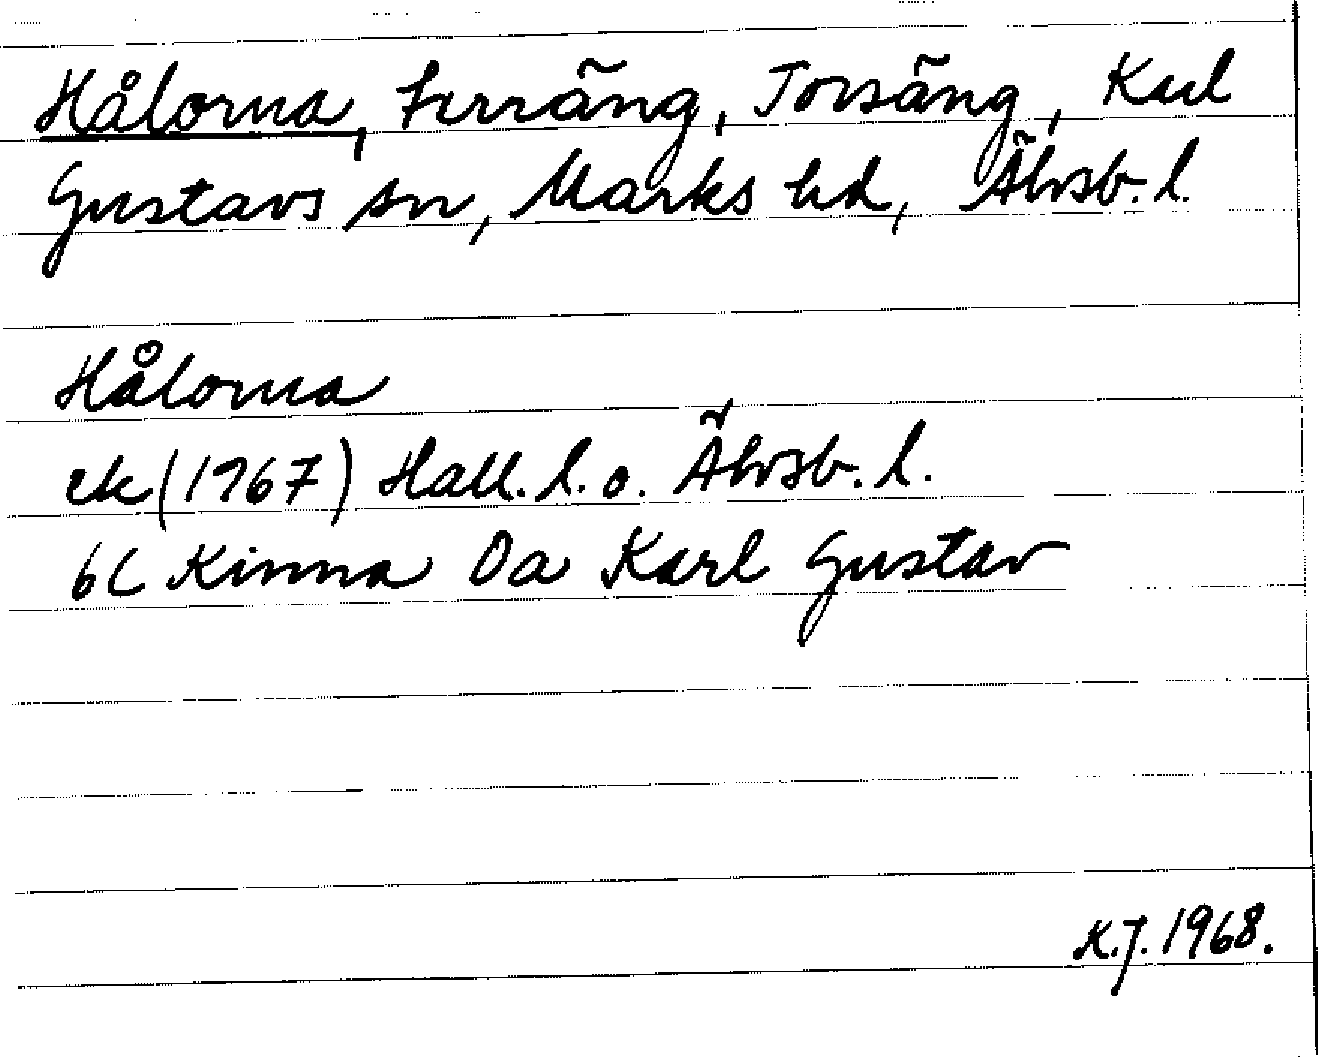 Hålorna, terräng, Torsäng, Karl
Gustavs sn, Marks hd, Älvsb. l.
Hålorna
ek (1967) Hall. l. o. Älvsb. l.
6C Kinna Da Karl Gustav
K.J. 1968.